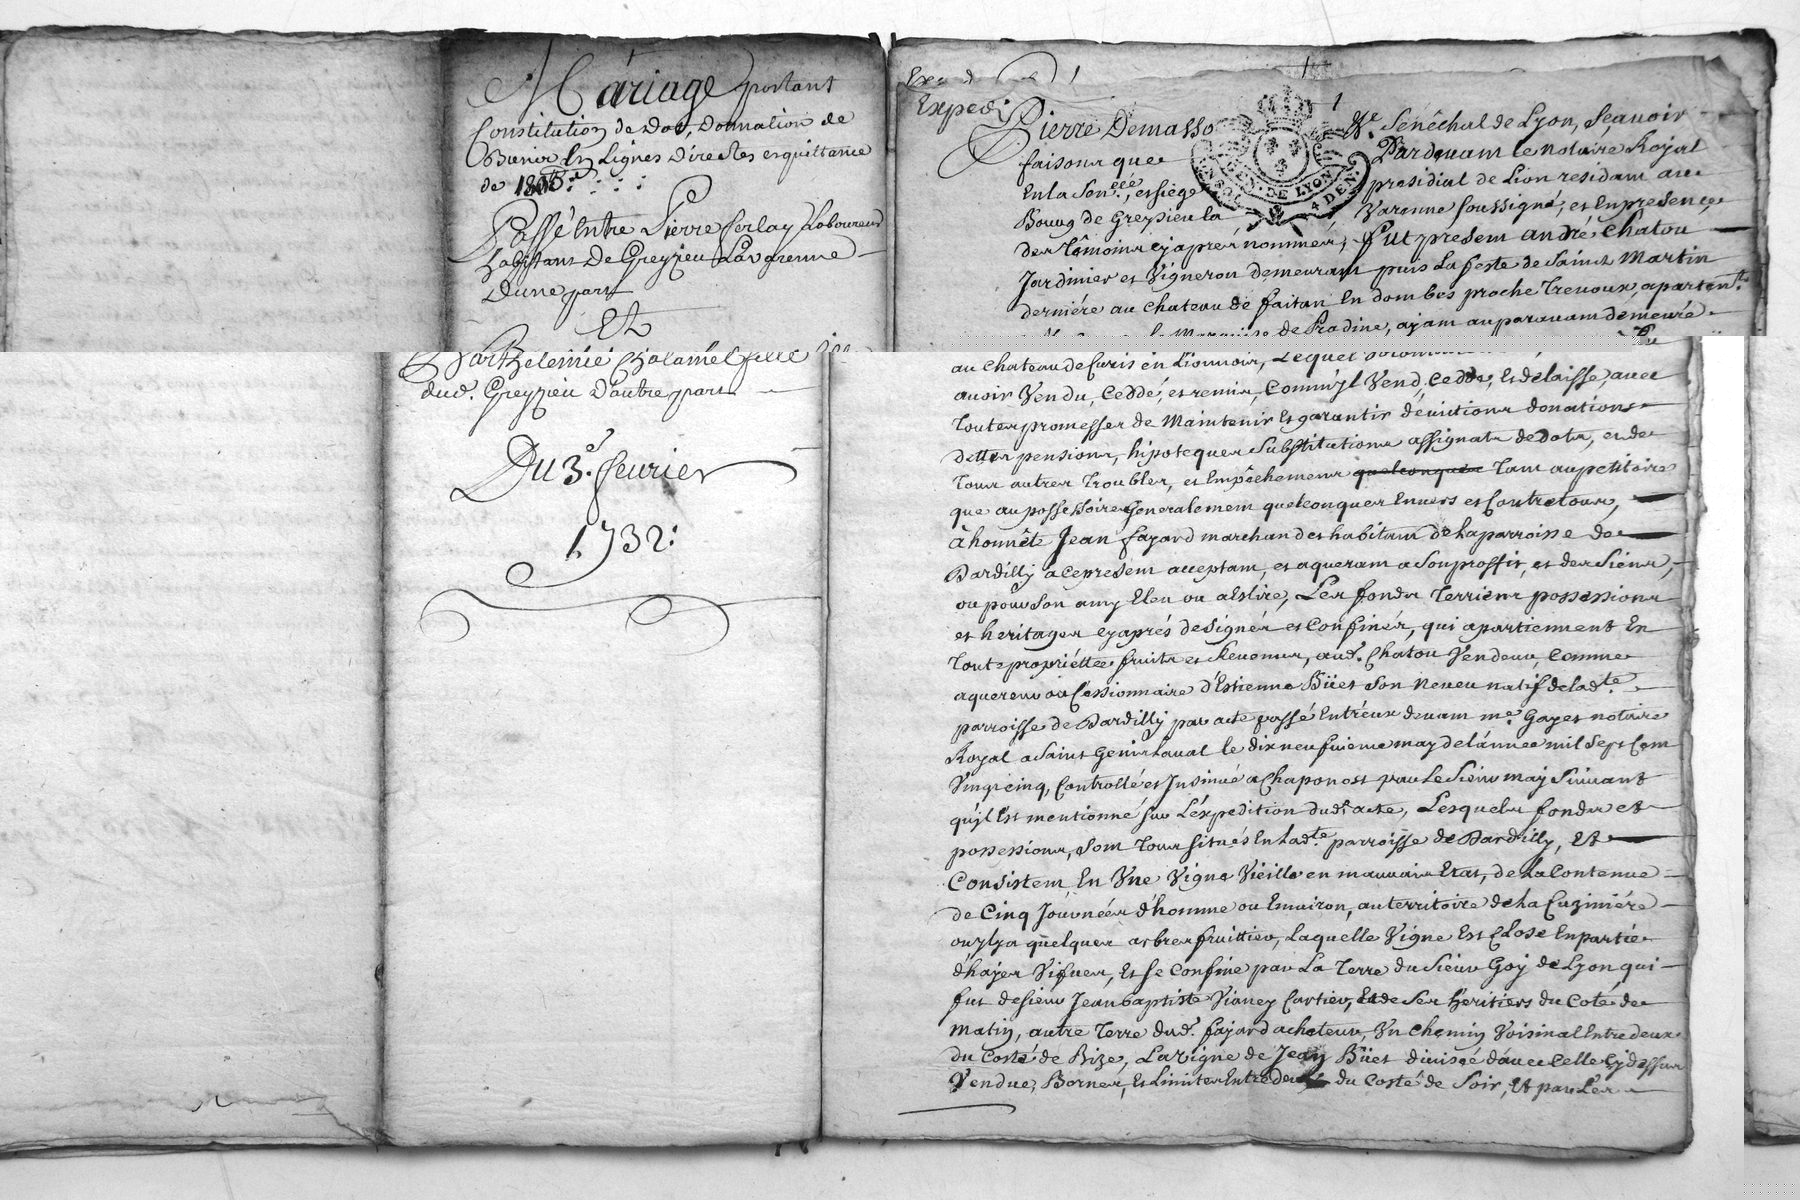 Mariage portant
Constitution de Dot, Donnation de
Biens En Lignes Directes et quittance
de
Passé Entre Pierre ferlay Laboureur
habitant De Greyzieu Lavarenne
Dune part
Et
Barthelemie Chalamel fille
dud. Greyzieu D'autre part
Du 3e. feurier
1732:
Exped
Pierre Demasso Me. Sénéchal de Lyon, Sçauoir
faisons que Pardeuant le Notaire Royal
En la Senée. et siège présidial de Lion residant au
Bourg de Greysieu la Varenne soussigné, et En presence
des Témoins cy aprés nommés, fut present andré Chatou
Jardinier et Vigneron demeurant puis La feste de Saint Martin
derniére au chateau de faitan En dombes proche Trevoux, apartent.
de Pradine, ayant auparauant demeuré
au chateau de Curis en Lionnois, Lequel
auoir Vendu, Ceddé, et remis, Comm'yl Vend, Cedde, Et delaisse, auec
Toutes promesses de Maintenir Et garantir d'éuictions donations
dettes pensions, hipoteques Substitutions assignats de dots, et de
Tous autres Troubles, et Empêchemens quelconques Tant au petitoire
que au possessoire Generalement quelconques Enuers et Contre tous,
à honnête Jean fayard marchand et habitant de la parroisse de
Dardilly a ce present acceptant, et aquerant a Son proffit, et des Siens,
ou pour Son amy Eleu ou a Eslire, Les fonds Terriens possessions
et heritages cy aprés designés et Confinés, qui apartiennent En
Toute propriéttée fruits et Reuenus, aud. Chatou Vendeur, Comme
aquereur ou Cessionnaire d'Estienne Büet Son Neueu natif de lad.te
parroisse de Dardilly par acte passé Entr'eux deuant me. Gayet notaire
Royal a Saint Genis Laual le dix neufuieme may de l'année mil Sept Cent
Vingt cinq, Controllé et Insinué a Chaponost par Le Sieur may Suiuant
qu'jl Est mentionné sur L'expedition dud. acte, Lesquels fonds et
possessions, Sont Tous situés En lad.te parroisse de Dardilly, Et
Consistent En Vne Vigne Vieille en mauuais Etat, de La Contenue
de Cinq Journées d'homme ou Enuiron, au territoire de la Cuziniére
ou jl y a quelques arbres fruitiers, Laquelle Vigne Est Close En partie
d'hayes Vifues, Et se Confine par La Terre du Sieur Goy de Lyon, qui
fut de sieur Jean baptiste Vianey Cartier, Et de Ses heritiers du Coté de
Matin, autre Terre dud. fayard acheteur, Vn Chemin Voisinal Entredeux
du Costé de Bize, La Vigne de Jean Büet diuisée d'auec Celle Cy dessus
Vendue, Bornes, Et Limites Entredeux du Costé de Soir, Et par Les